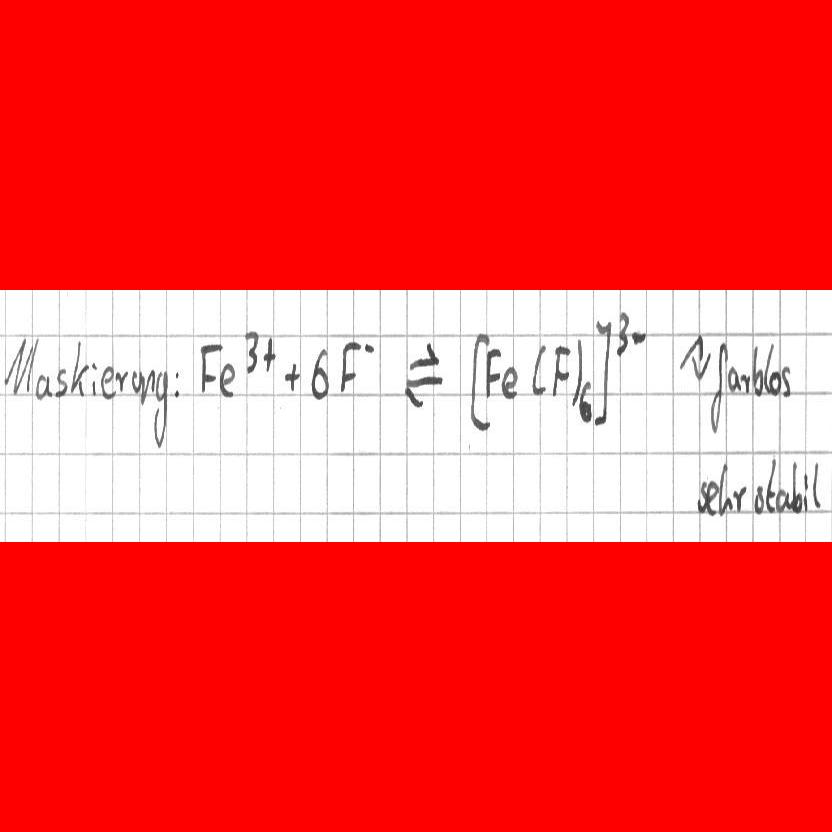 Maskierung: Fe³⁺ + 6 F⁻ ⇌ [Fe(F)₆]³⁻ ↝ farblos
sehr stabil